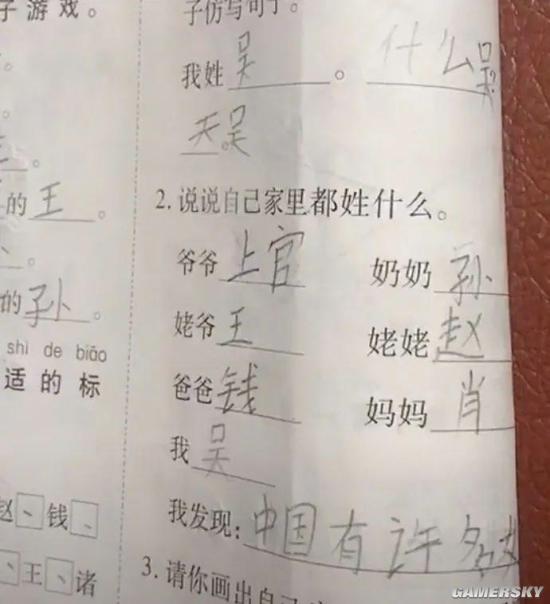 子游戏。
。
。
的王。
。
的孙。
shì de biāo
适的标
赵、钱、
、王、诸
子仿写句子。
我姓吴。什么吴?
天吴。
2.说说自己家里都姓什么。
爷爷上官 奶奶孙
姥爷王 姥姥赵
爸爸钱 妈妈肖
我吴
我发现:中国有许多
3.请你画出自己
GAMERSKY